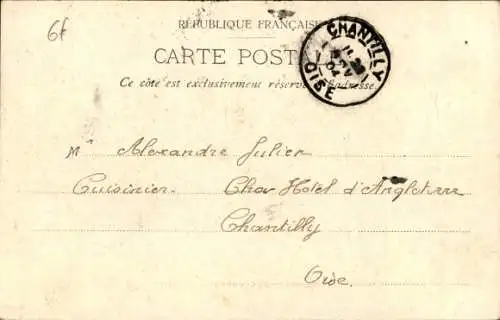 6f
RÉPUBLIQUE FRANÇAISE
CARTE POST
Ce côté est exclusivement réservé adresse
CHANTILLY
OISE
Mr Alexandre Julien
Cuisinier. Chez Hotel d'Angleterre
Chantilly
Oise.